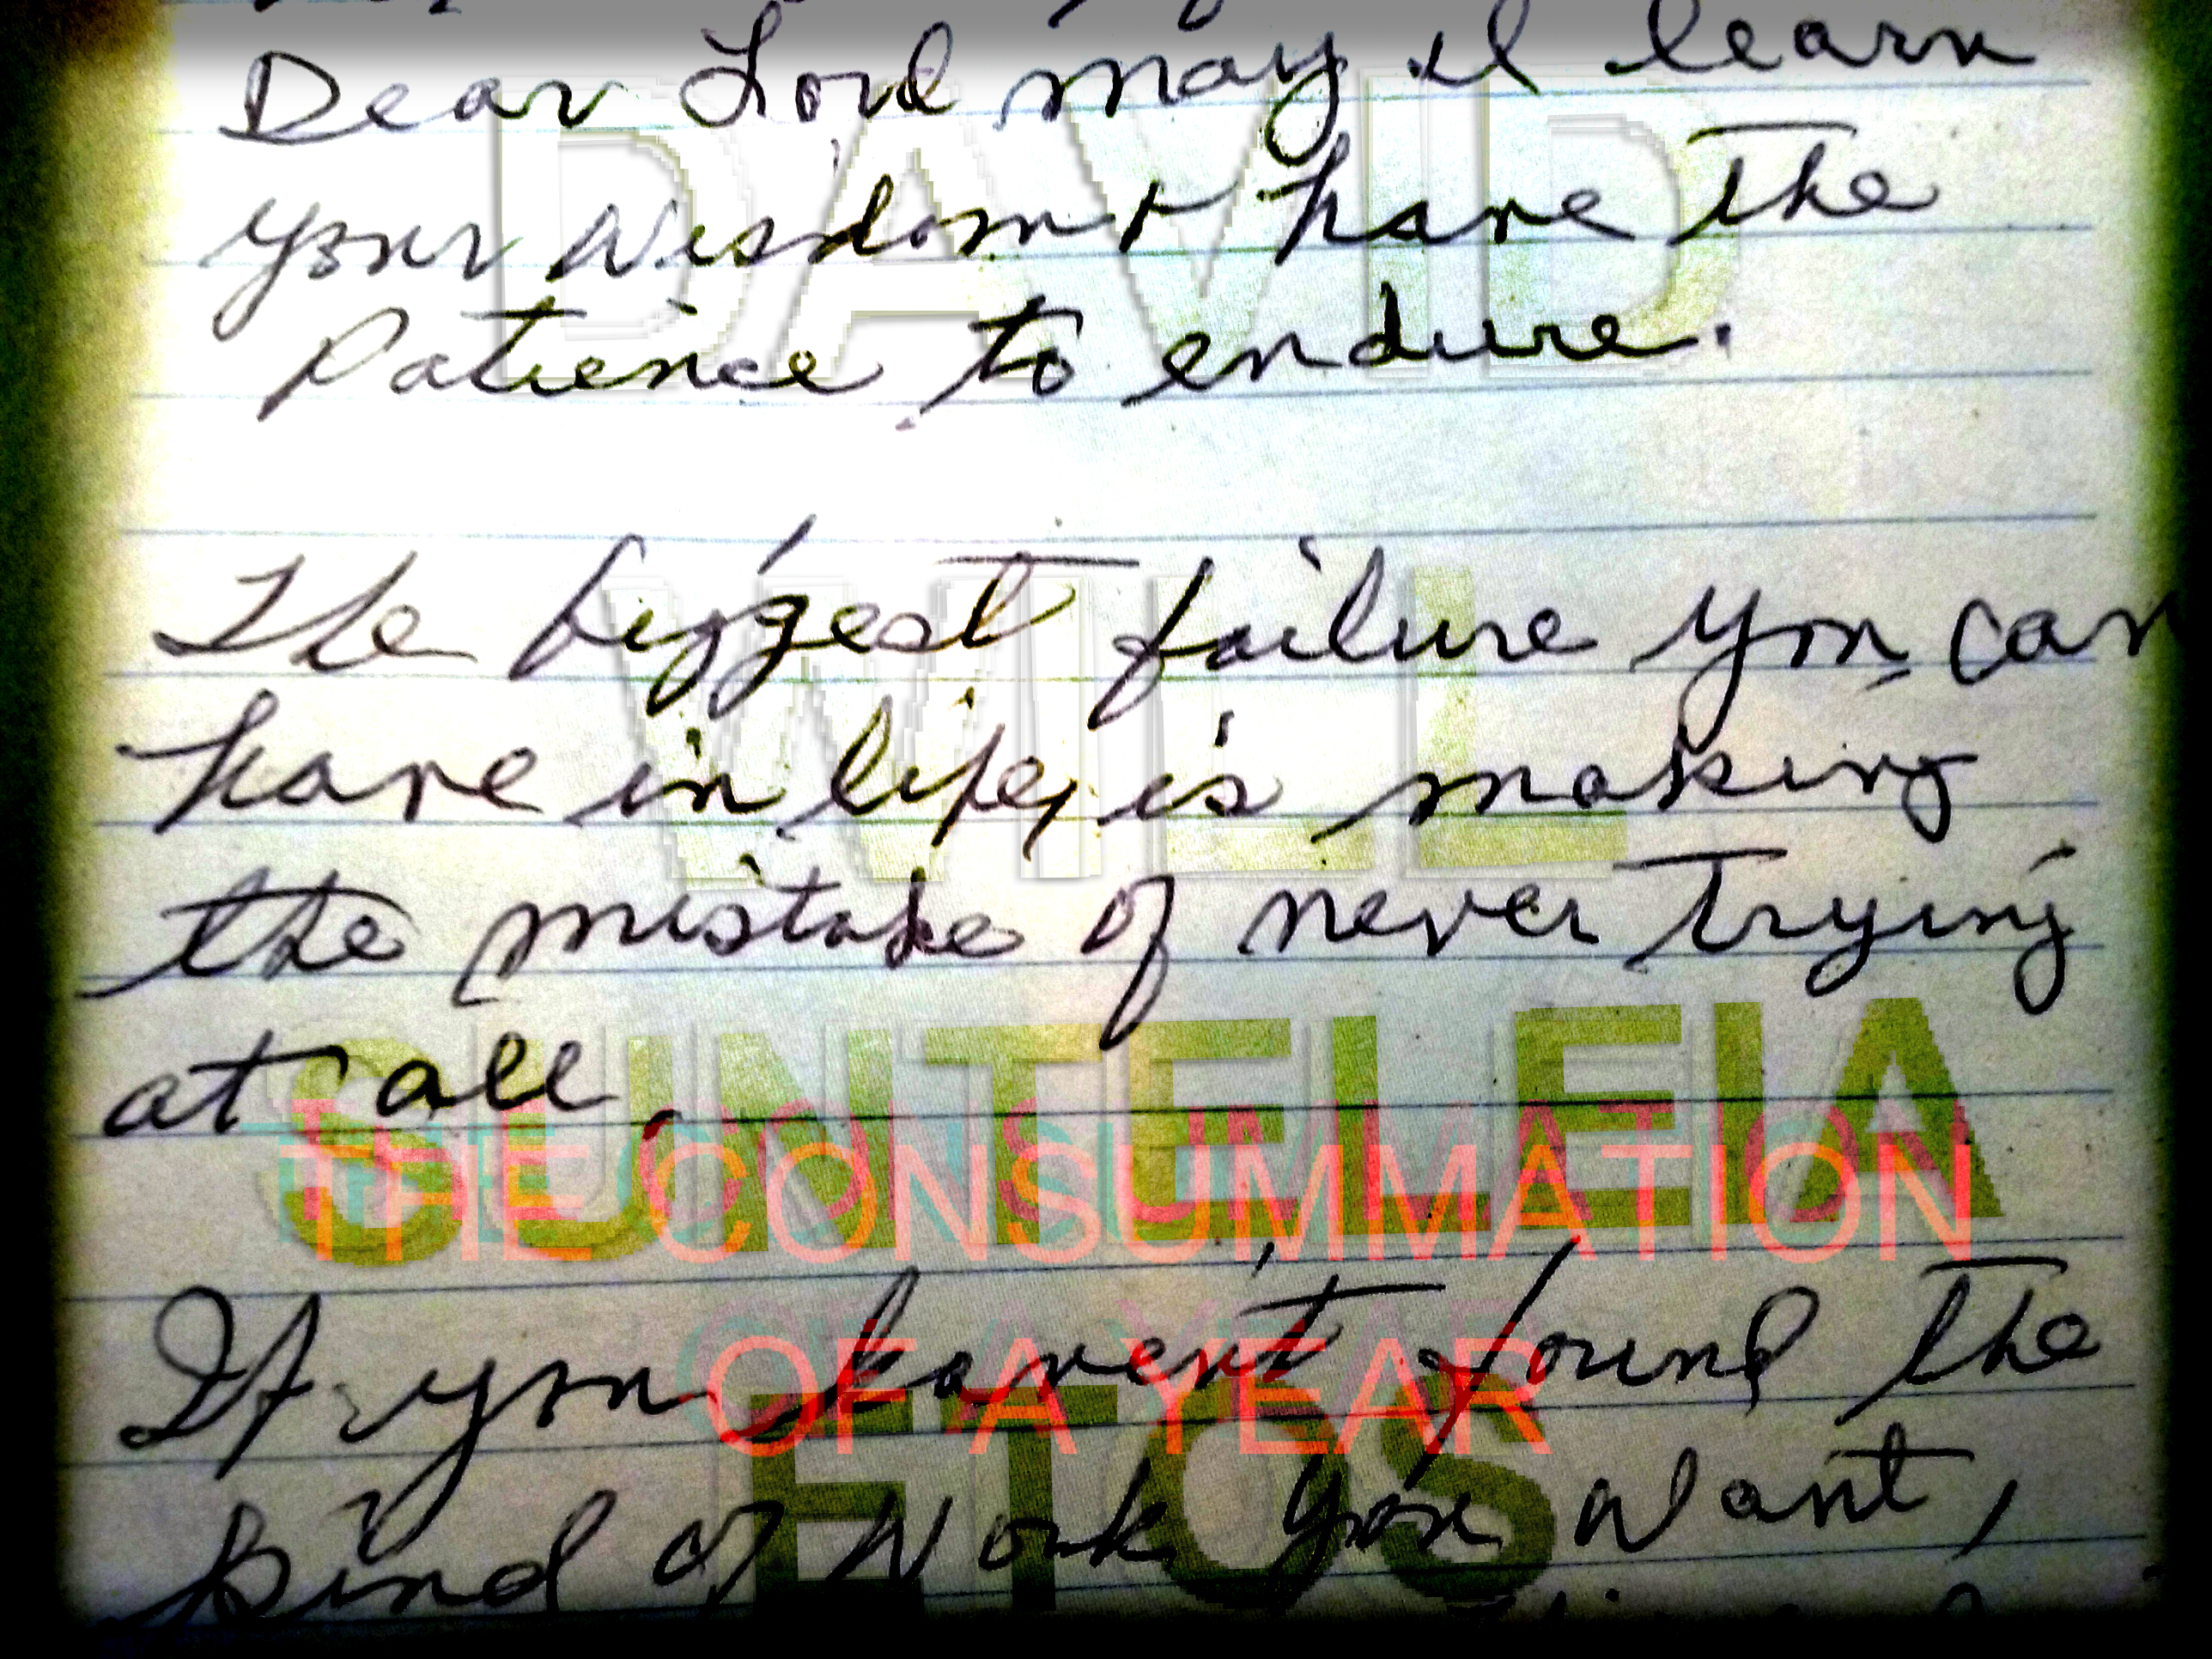 Dear Lord may I learn
DAVID
your wisdom & have the
Patience to endure.
The biggest failure you can
WILL
have in life, is making
the mistake of never trying
at all.
SUNTELEIA
THE CONSUMMATION
OF A YEAR
If you haven't found the
ETOS
kind of work you want,